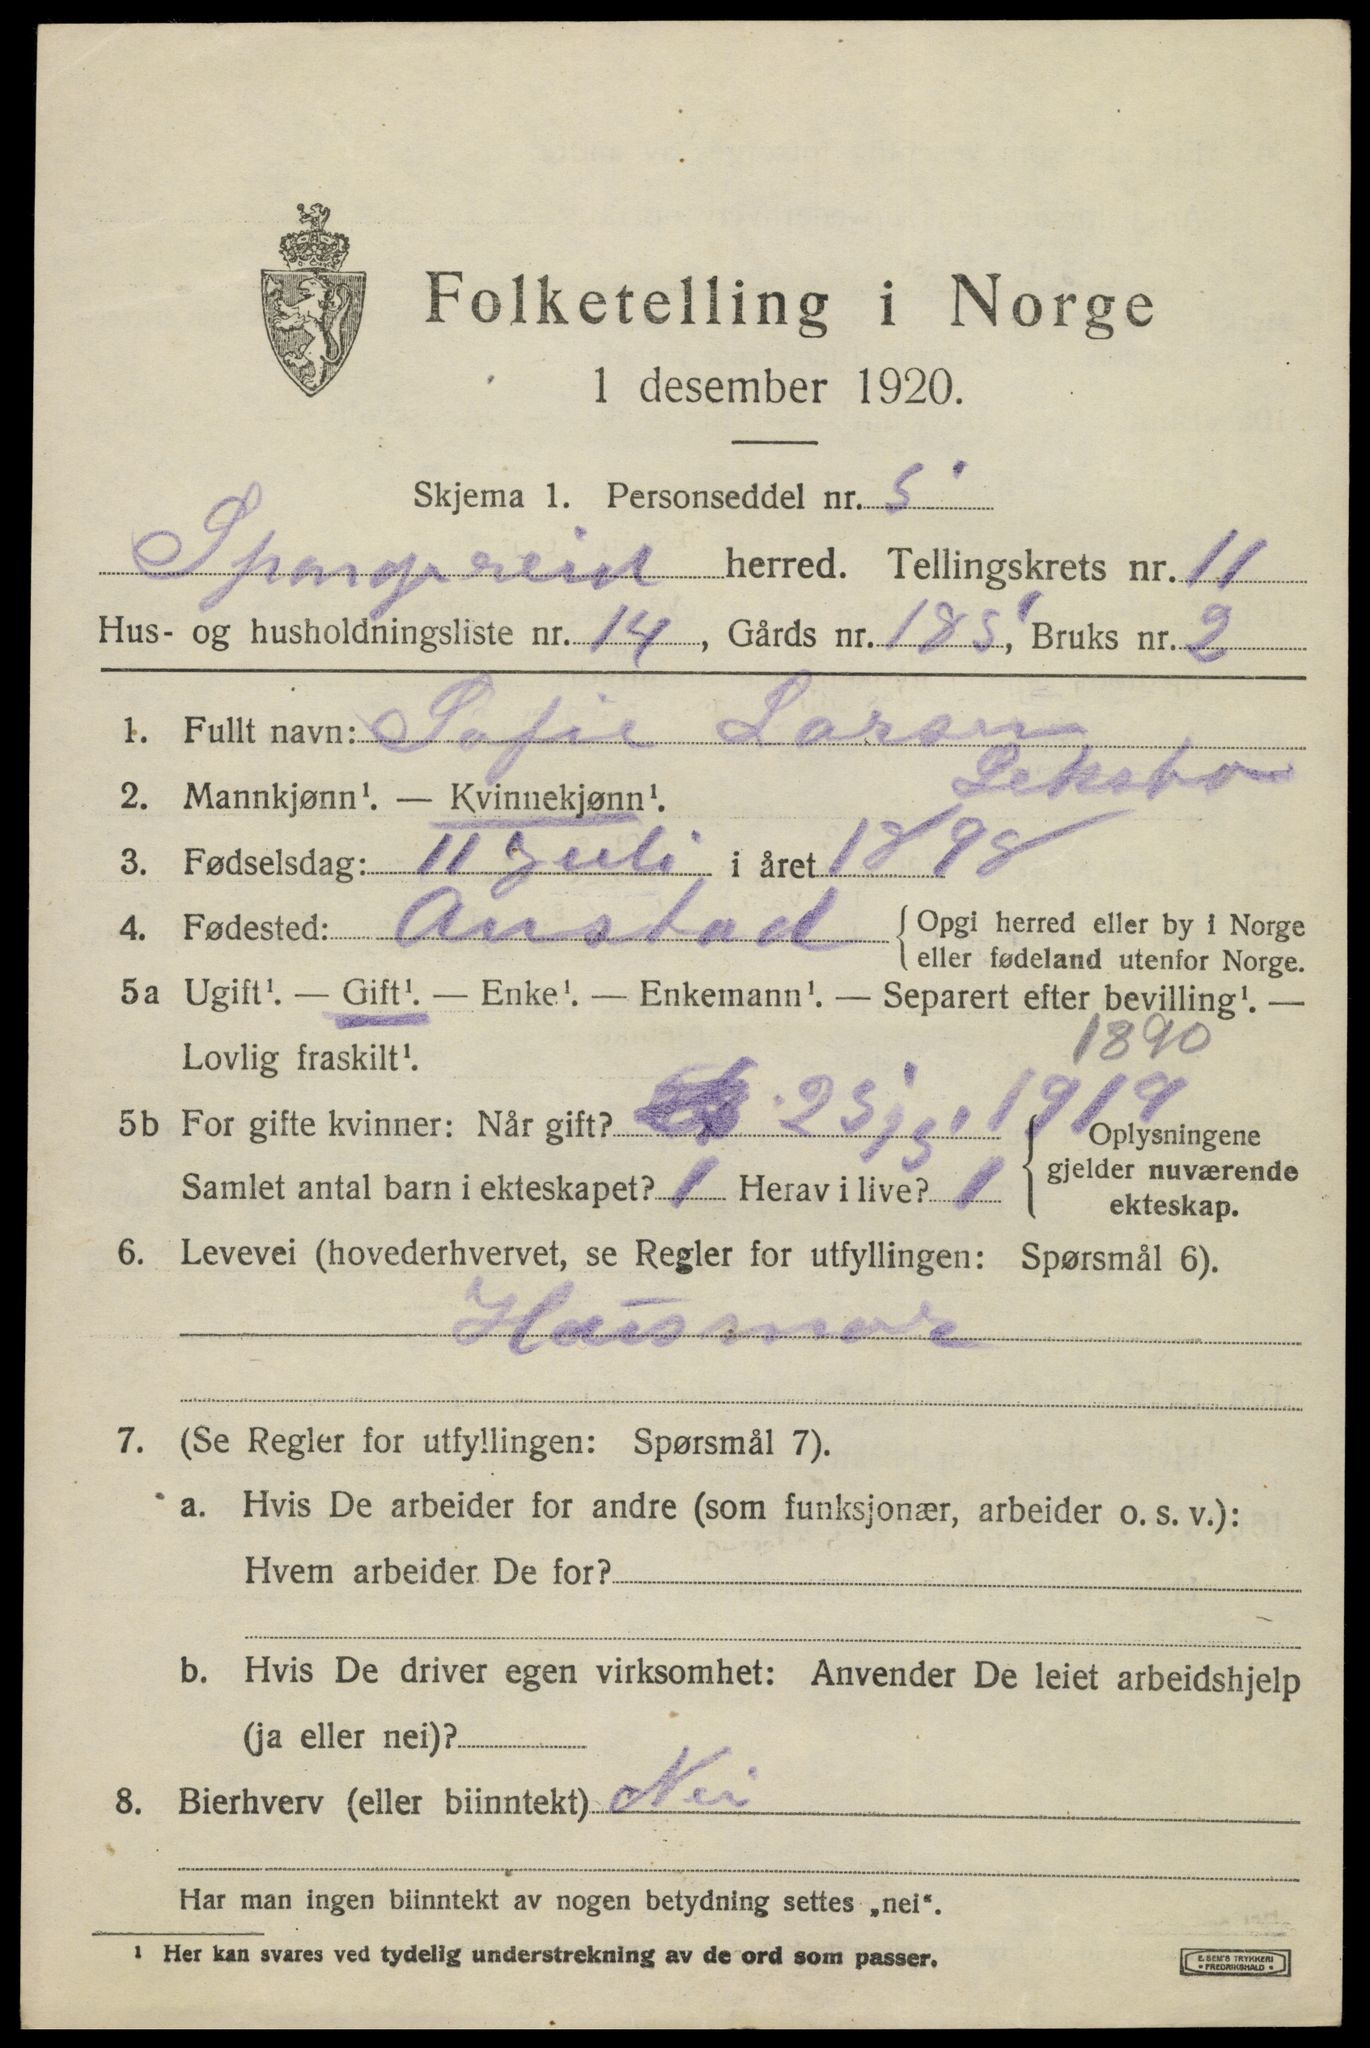 Folketelling i Norge
1 desember 1920.
Skjema 1. Personseddel nr. 5
Spangereid herred. Tellingskrets nr. 11
Hus- og husholdningsliste nr. 14, Gårds nr. 185, Bruks nr. 2
1. Fullt navn: Sofie Larsen
2. Mannkjønn¹. — Kvinnekjønn¹.
3. Fødselsdag: 11 juli i året 1898
4. Fødested: Austad { Opgi herred eller by i Norge
eller fødeland utenfor Norge.
5a Ugift¹. — Gift¹. — Enke¹. — Enkemann¹. — Separert efter bevilling¹. —
Lovlig fraskilt¹. 1890
5b For gifte kvinner: Når gift? 23/5 1919
Samlet antal barn i ekteskapet? 1 Herav i live? 1 { Oplysningene
gjelder nuværende
ekteskap.
6. Levevei (hovederhvervet, se Regler for utfyllingen: Spørsmål 6).
Husmor
7. (Se Regler for utfyllingen: Spørsmål 7).
a. Hvis De arbeider for andre (som funksjonær, arbeider o. s. v.):
Hvem arbeider De for?
b. Hvis De driver egen virksomhet: Anvender De leiet arbeidshjelp
(ja eller nei)?
8. Bierhverv (eller biinntekt) Nei
Har man ingen biinntekt av nogen betydning settes „nei“.
¹ Her kan svares ved tydelig understrekning av de ord som passer.
E. SEM'S TRYKKERI
• FREDRIKSHALD •